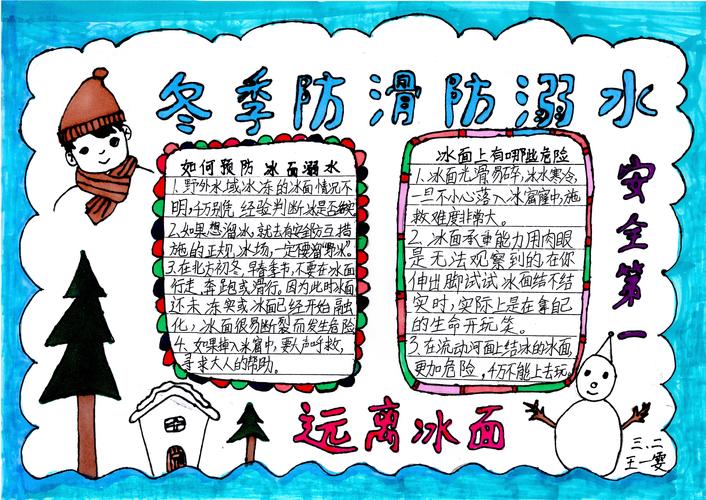 冬季防滑防溺水
如何预防冰面溺水
1.野外水域冰冻的冰面情况不
明,千万别凭经验判断冰是否结实
2.如果想溜冰,就去有安全防互措
施的正规冰场,一定不要溜“野冰”。
3.在北方初冬,早春季节,不要在冰面
行走,奔跑或滑行。因为此时冰面
还未冻实或冰面已经开始融
化,冰面很易断裂而发生危险
4.如果掉入冰窖中,要大声呼救,
寻求大人的帮助。
冰面上有哪些危险
1.冰面光滑易碎,冰水寒冷,
一旦不小心落入冰窟窿中,施
救难度非常大。
2.冰面承重能力用肉眼
是无法观察到的在你
伸出脚试试冰面结不结
实时,实际上是在拿自己
的生命开玩笑。
3.在流动河面上结冰的冰面,
更加危险,千万不能上去玩。
安全第一
远离冰面
三、二
王一雯